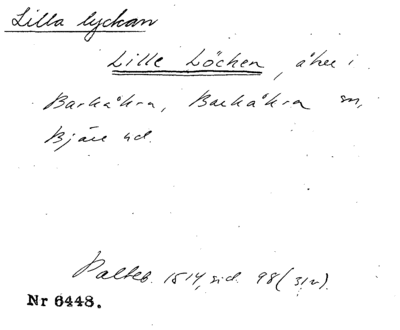 Lilla lyckan
Lille Löchen, åker i
Barkåkra, Barkåkra sn,
Bjäre hd.
1514, sid. 98 (31v).
Nr 6448.